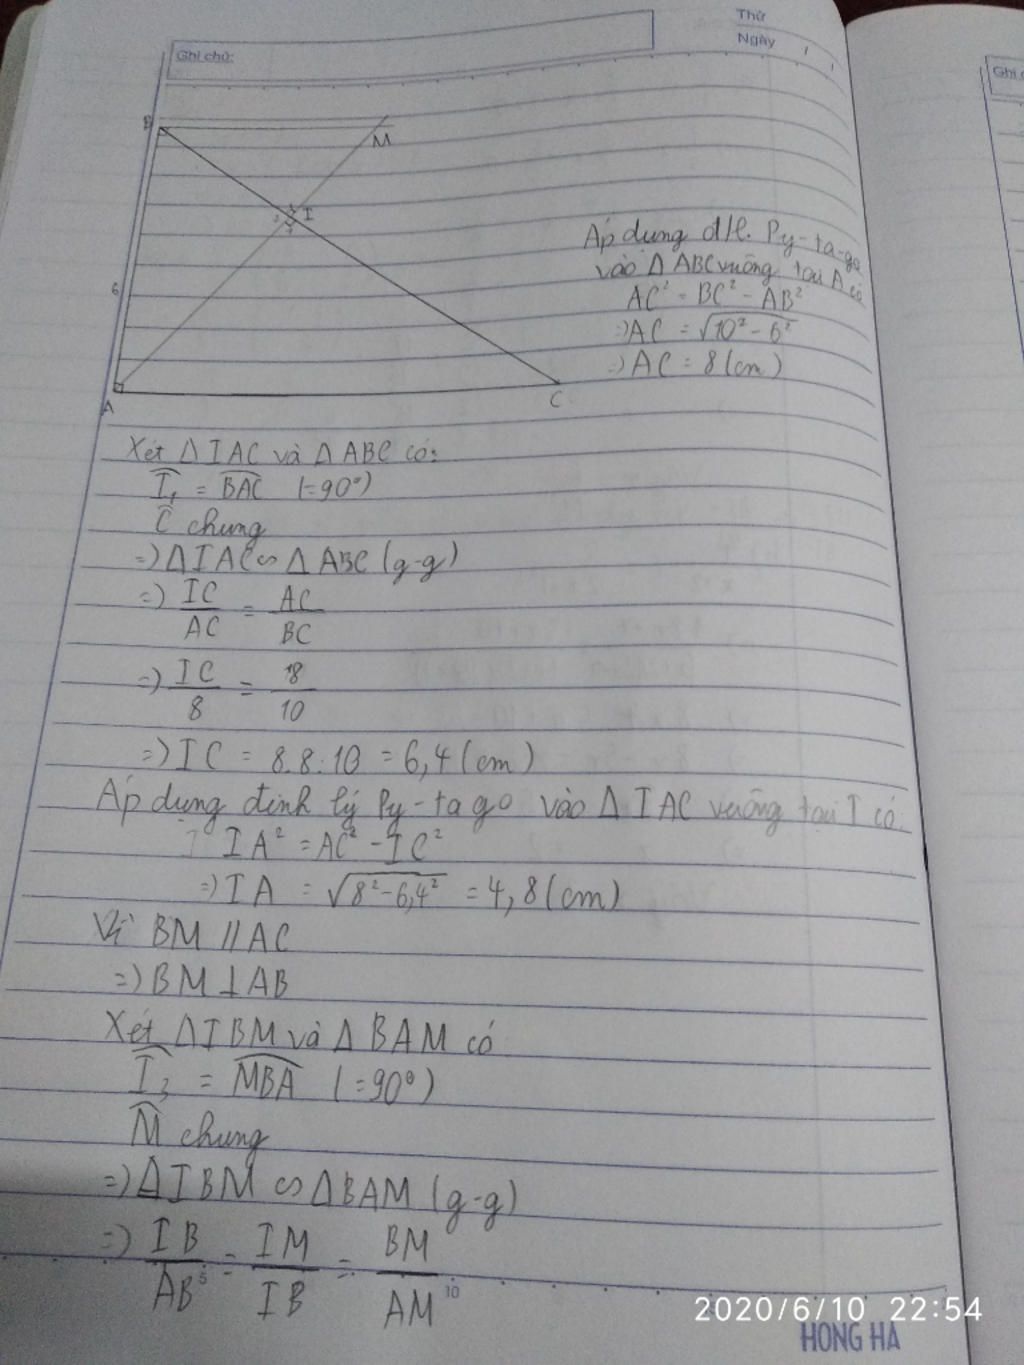 Thứ
Ngày
Ghi chú:
B
M
I
6
A
C
Áp dụng đ/l Py-ta-go
vào Δ ABC vuông tại A có
AC² = BC² - AB²
=> AC = √10² - 6²
=> AC = 8 (cm)
Xét Δ IAC và Δ ABC có:
I₁ = BAC (=90°)
C chung
=> Δ IAC ∽ Δ ABC (g-g)
=> IC/AC = AC/BC
=> IC/8 = 8/10
=> IC = 8.8:10 = 6,4 (cm)
Áp dụng định lý Py-ta go vào Δ IAC vuông tại I có:
IA² = AC² - IC²
=> IA = √8² - 6,4² = 4,8 (cm)
Vì BM // AC
=> BM ⊥ AB
Xét Δ IBM và Δ BAM có
I₃ = MBA (=90°)
M chung
=> Δ IBM ∽ Δ BAM (g-g)
=> IB/AB = IM/IB = BM/AM
5
10
2020/6/10 22:54
HONG HA